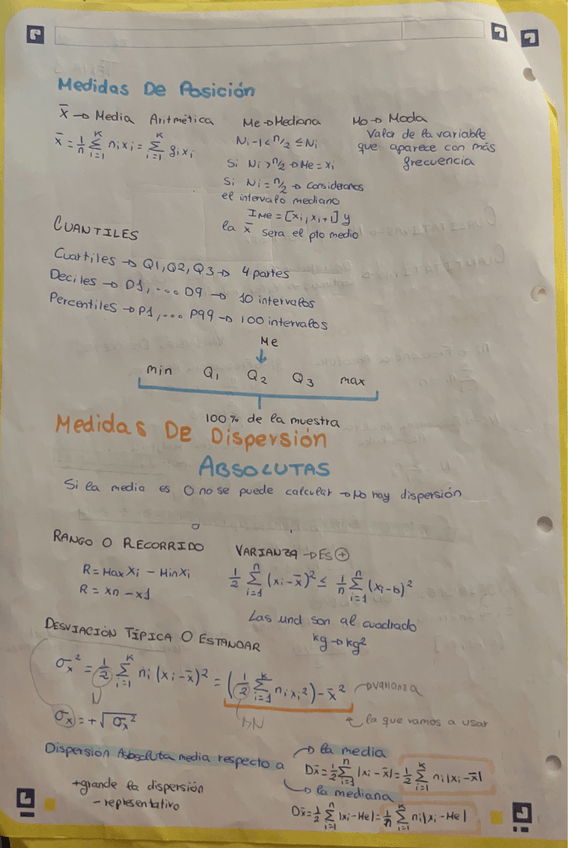 Medidas De Posición
x̄ → Media Aritmética
x̄ = 1/n Σ(i=1, K) ni xi = Σ(i=1, K) fi xi
Me → Mediana
Ni-1 < n/2 ≤ Ni
Si Ni > n/2 → Me = xi
Si Ni = n/2 → consideramos
el intervalo mediano
IMe = [xi, xi+1] y
la x̄ sera el pto medio
Mo → Moda
Valor de la variable
que aparece con más
frecuencia
CUANTILES
Cuartiles → Q1, Q2, Q3 → 4 partes
Deciles → D1, ... D9 → 10 intervalos
Percentiles → P1, ... P99 → 100 intervalos
Me
min Q1 Q2 Q3 max
100% de la muestra
Medidas De Dispersión
ABSOLUTAS
Si la media es 0 no se puede calcular → No hay dispersión
RANGO O RECORRIDO
R = Max xi - Min xi
R = xn - x1
VARIANZA → DES ⊕
1/2 Σ(i=1, n) (xi - x̄)² ≤ 1/n Σ(i=1, n) (xi - b)²
Las und son al cuadrado
kg → kg²
DESVIACIÓN TÍPICA O ESTANDAR
σx² = 1/2 Σ(i=1, K) ni (xi - x̄)² = (1/2 Σ(i=1, K) ni xi²) - x̄² → varianza
N
→ N
la que vamos a usar
σx = + √σx²
Dispersion Absoluta media respecto a
→ la media
Dx̄ = 1/2 Σ(i=1, n) |xi - x̄| = 1/2 Σ(i=1, K) ni |xi - x̄|
→ la mediana
Dx̄ = 1/2 Σ(i=1, n) |xi - Me| = 1/n Σ(i=1, K) ni |xi - Me|
+ grande la dispersión
- representativo